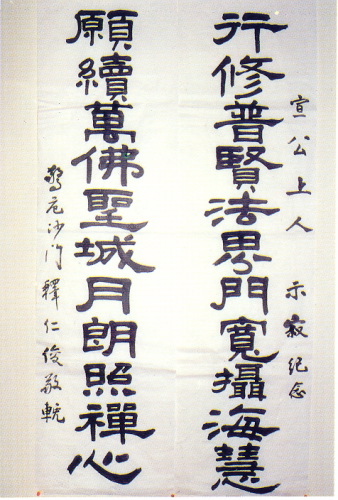 宣公上人 示寂紀念
行修普賢法界門寬攝海慧
願續萬佛聖城月朗照禪心
驚危沙門釋仁俊敬輓